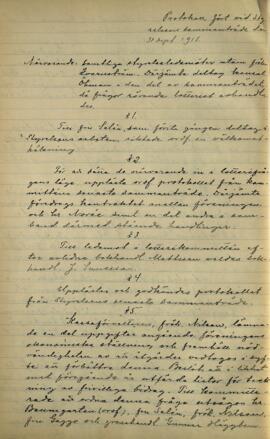 Protokoll fört vid sty-
relsens sammanträde den
21 sept. 1911.
Närvarande: samtliga styrelseledamöter utom fröken
Dessutom deltog
Öhman i den del av sammanträdet,
då frågor rörande lotteriet avhandla-
des.
§ 1.
Till fru Selin, som första gången deltog i
styrelsens arbeten, riktade ordf. en välkomst-
hälsning.
§ 2.
För att sätta de närvarande in i lotterifrå-
gans läge upplästes ordf. protokollet från kom-
mitténs senaste sammanträde. Därjämte
föredrogs kontraktet mellan föreningen
och hr Norée samt en del andra i sam-
band därmed stående handlingar.
§ 3.
Till ledamot i lotterikommittén ef-
ter avlidne bokhand. Mathsson valdes bok-
handl. J. Svensson.
§ 4
Upplästes och godkändes protokollet
från styrelsens senaste sammanträde.
§ 5.
Kassaförvaltaren, frök. Nilsson, lämna-
de en del uppgifter angående föreningens
ekonomiska ställning och framhöll nöd-
vändigheten av att åtgärder vidtagas i syf-
te att förbättra denna. Beslöts att i likhet
med föregående år utfärda listor för teck-
ning av frivilliga bidrag. Till kommitte-
rade att ordna denna fråga utsågos hr
Baumgarten (ordf.), fru Selin, frök. Nilsson,
fru Gagge och grosshandl. Gunnar